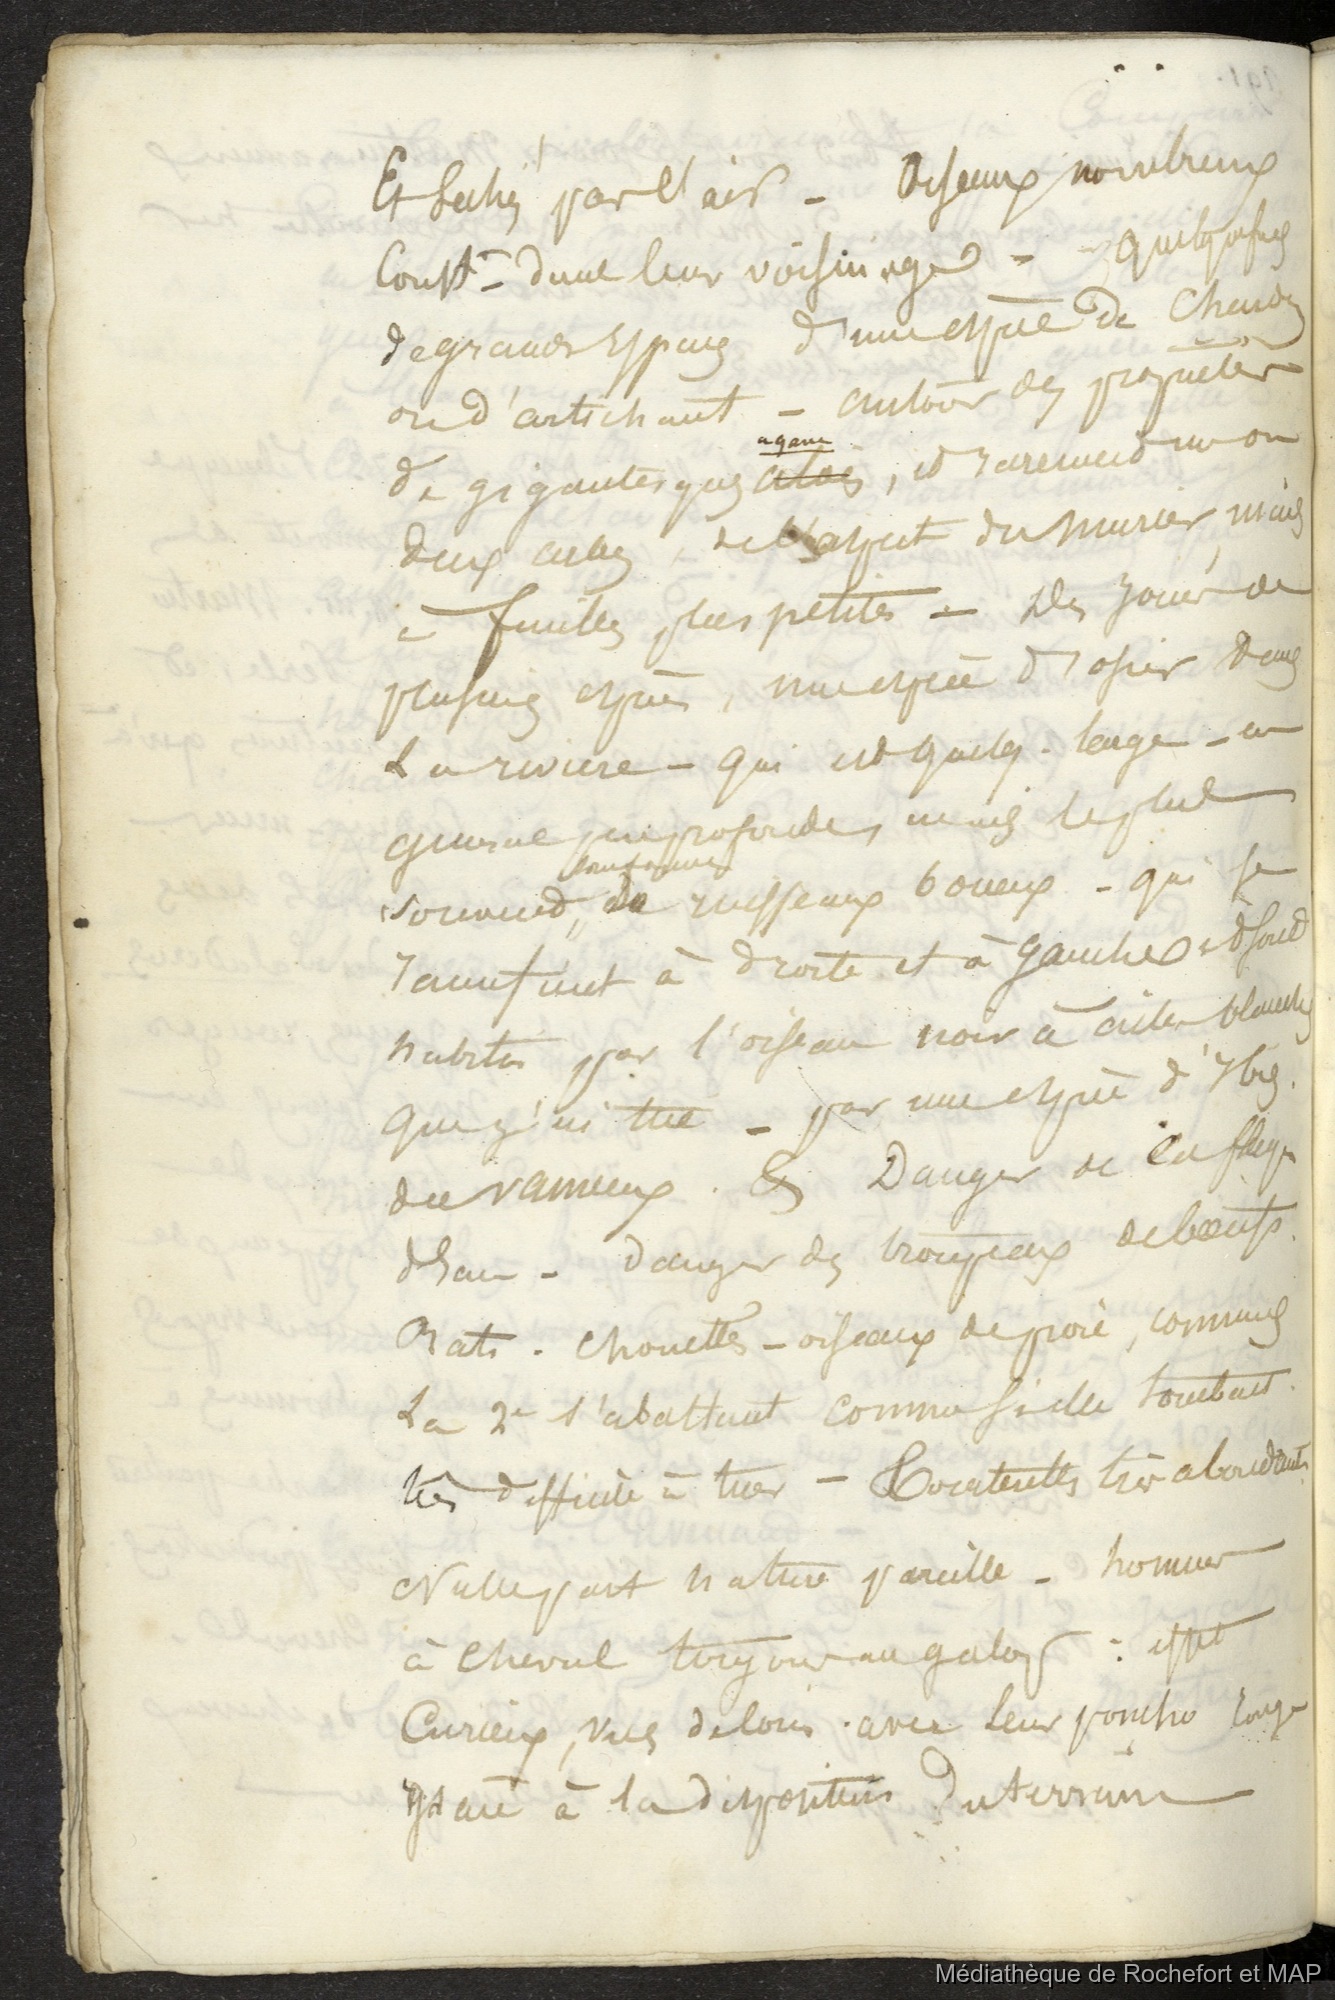 Et par l'air - Oiseaux nombreux
dans leur voisinage - quelquefois
de grands espaces d'une espèce de chardon
ou d'artichaut - autour des propriétés
de gigantesques aloes agave, et rarement un ou
deux arbres, de l'aspect du murier, mais
à feuilles plus petites - Des joncs de
plusieurs espèces, une espèce d'osier dans
La riviere - qui est quelq. large - en
general peu profonde, mais le plus
souvent, de ruisseaux boueux - qui se
ramifient à droite et à gauche et sont
habités par l'oiseau noir à ailes blanches
que j'ai tué - par une espèce d'Ibis.
des vaneaux. & Danger de
d'eau - danger des troupeaux de boeufs.
Rats. Chouettes - oiseaux de proie, communs
La 2e s'abattant comme si elle tombait.
très difficile à tuer - Tourterelles très abondantes
Nulle part nature pareille - hommes
à cheval toujours au galop : effet
Curieux, vus de loin. avec leur poncho rouge
à la disposition du terrain